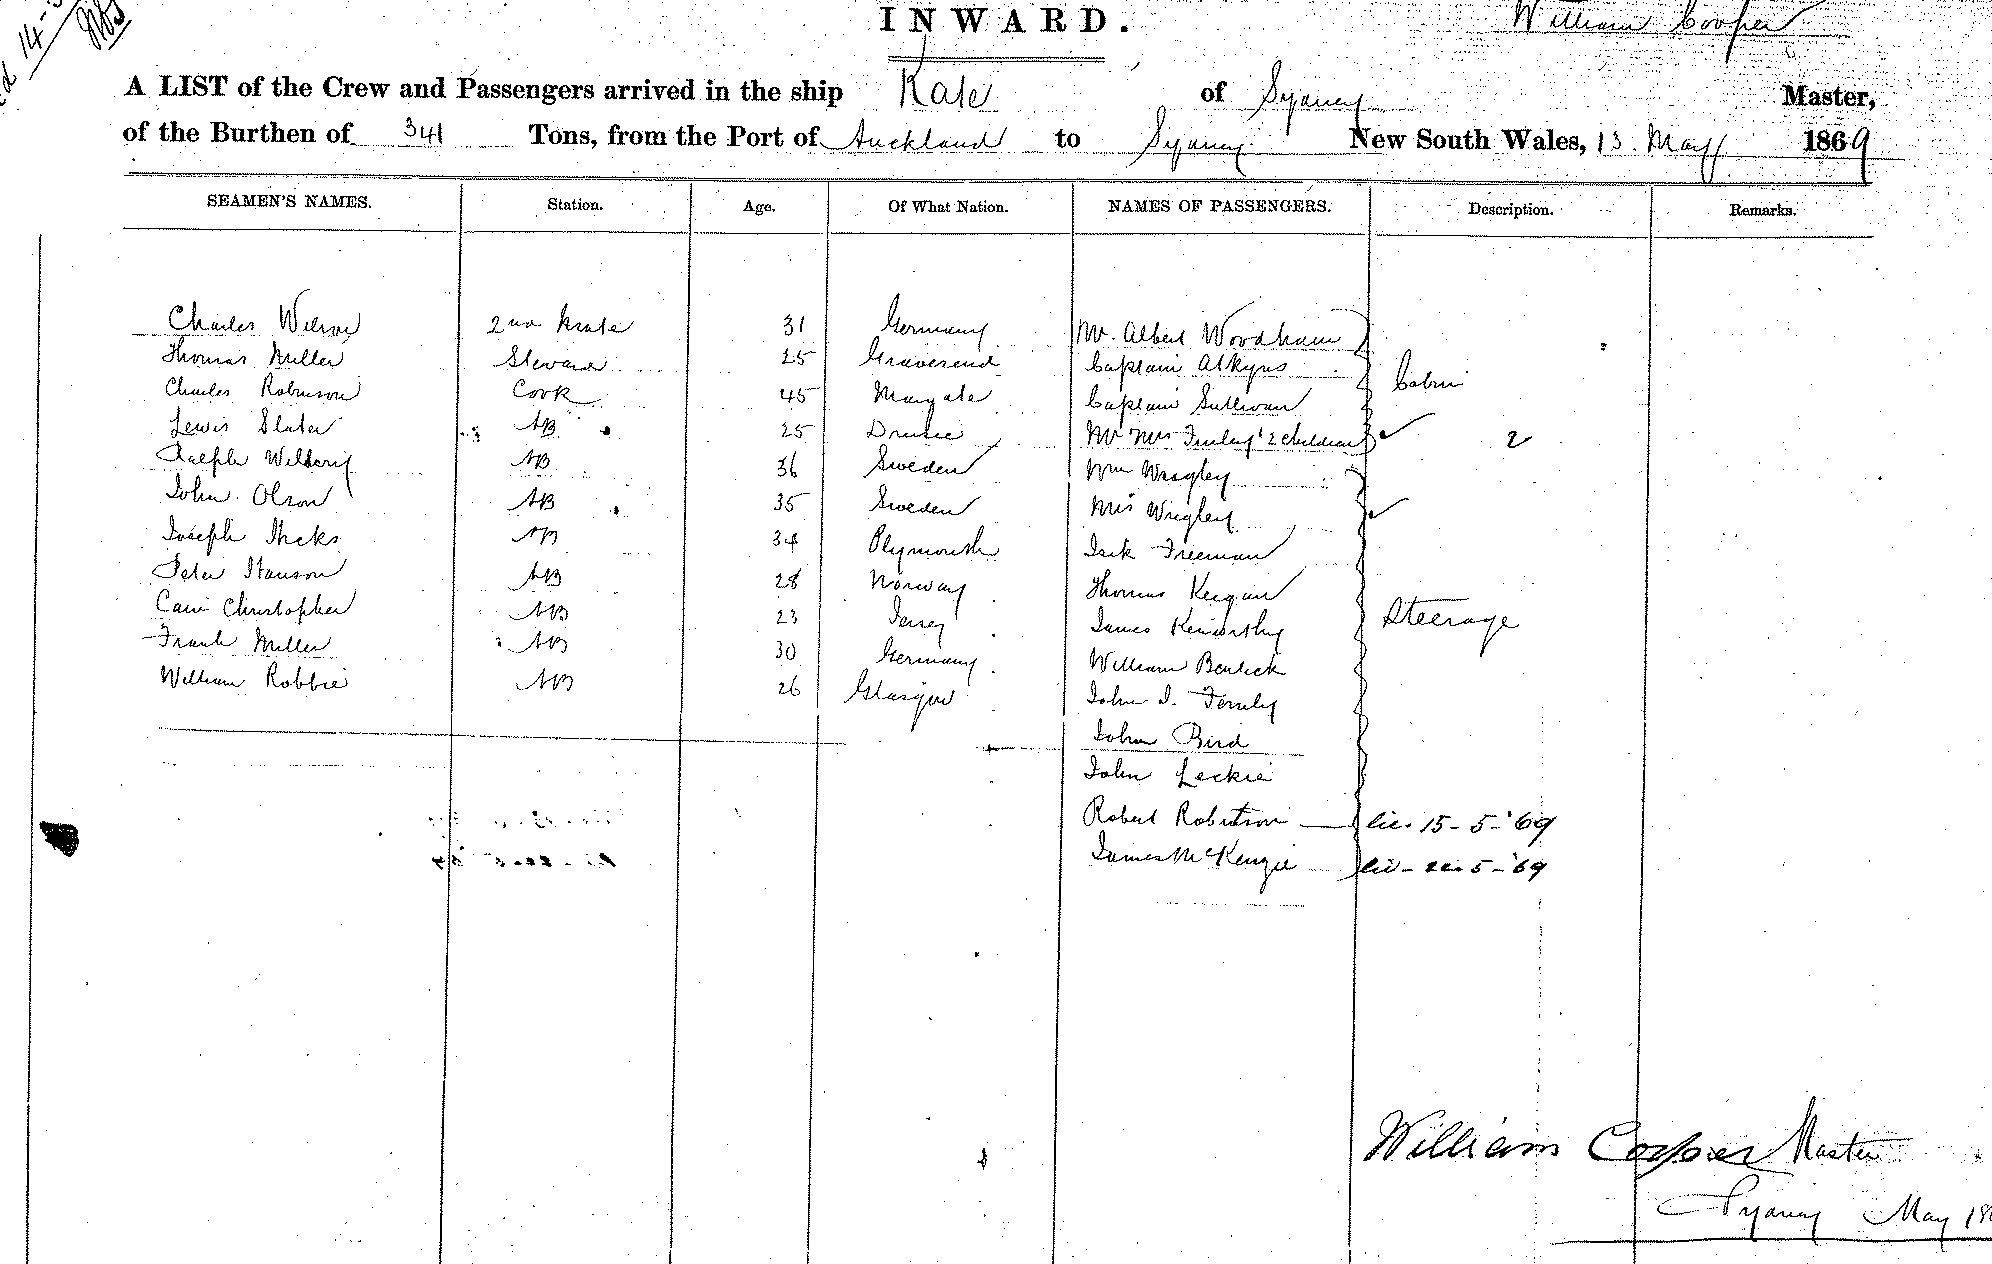 INWARD.
William Cooper
A LIST of the Crew and Passengers arrived in the ship Kate of Sydney Master,
of the Burthen of 341 Tons, from the Port of Auckland to Sydney New South Wales, 13 May 1869
SEAMEN'S NAMES. Station. Age. Of What Nation. NAMES OF PASSENGERS. Description. Remarks.
Charles Wilson 2nd Mate 31 Germany Mr. Albert Woodham
Thomas Miller Steward 25 Gravesend Captain Atkyns
Charles Robinson Cook 45 Margate Captain Sullivan Cabin
Lewis Slater AB 25 Mr Mrs & 2 children 2
AB 36 Sweden Wm Wrigley
John Olson AB 35 Sweden Mrs Wrigley
Joseph Hicks AB 34 Plymouth Freeman
Peter Hanson AB 28 Norway Thomas Keegan
Christopher AB 23 Jersey James Kenworthy Steerage
Frank Miller AB 30 Germany William
William Robbie AB 26 Glasgow John
John Bird
John Leckie
Robert Robertson 15-5-'69
James McKenzie 5-'69
William Cooper Master
Sydney May